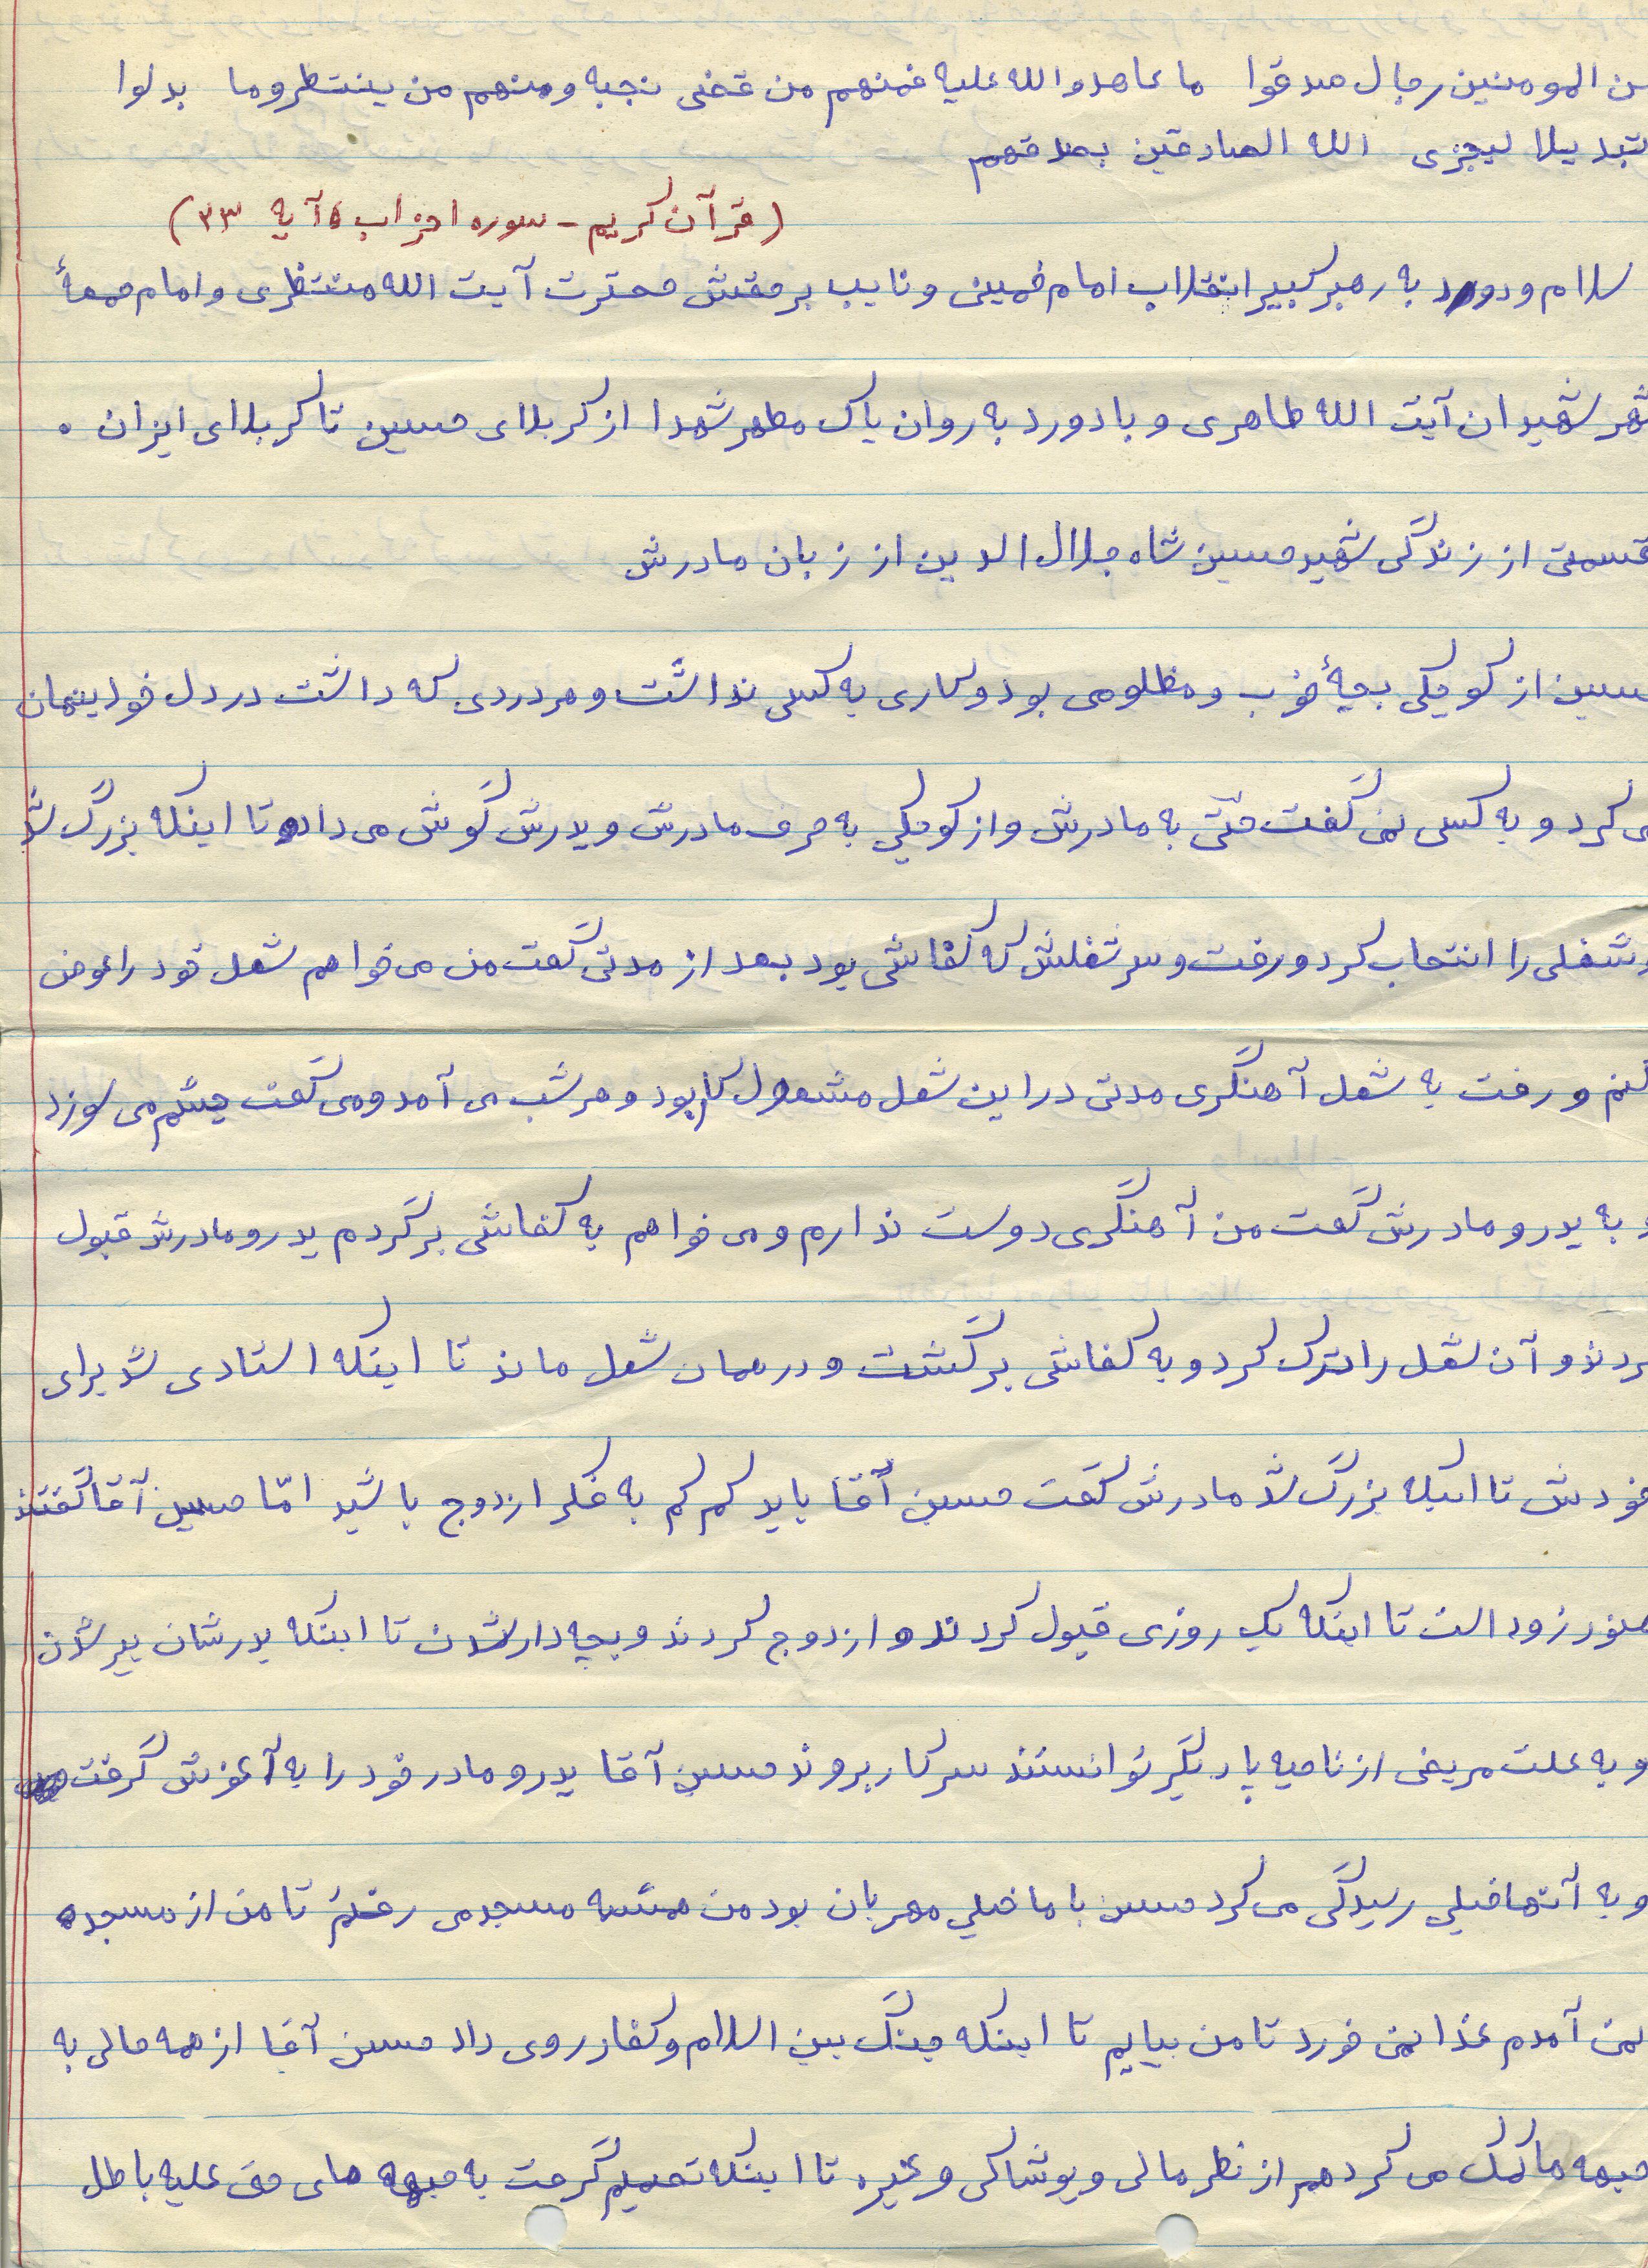 من المومنین رجال صدقوا ما عاهدوالله علیه فمنهم من قضی نحبه ومنهم من ینتظروما بدلوا
تبدیلا لیجزی الله الصادقین بصدقهم
(قرآن کریم - سوره احزاب، آیه ۲۳)
سلام ودورد به رهبر کبیر انقلاب امام خمینی و نایب برحقش حضرت آیت الله منتظری و امام جمعهٔ
شهر شهیدان آیت الله طاهری و با دورد به روان پاک مطهر شهدا از کربلاای حسین تا کربلاای ایران .
قسمتی از زندگی شهید حسین شاه جلال الدین از زبان مادرش
حسین از کوچکی بچهٔ خوب و مظلومی بود و کاری به کسی نداشت و هر دردی که داشت در دل خود پنهان
می کرد و به کسی نمی گفت حتّی به مادرش و از کوچکی به حرف مادرش و پدرش گوش می داد تا اینکه بزرگ شد
و شغلی را انتخاب کرد و رفت و سر شغلش که کفاشی بود بعد از مدتی گفت من می خواهم شغل خود را عوض
کنم و رفت به شغل آهنگری مدتی در این شغل مشغول کار بود و هر شب می آمد و می گفت چشمم می سوزد
و به پدر و مادرش گفت من آهنگری دوست ندارم و می خواهم به کفاشی برگردم پدر و مادرش قبول
کردند و آن شغل را ترک کرد و به کفاشی برگشت و در همان شغل ماند تا اینکه استادی شد برای
خودش تا اینکه بزرگ شد مادرش گفت حسین آقا باید کم کم به فکر ازدوج باشید امّا حسین آقا گفتند
هنوز زود است تا اینکه یک روزی قبول کردند و ازدوج کردند و بچه دار شدن تا اینکه پدرشان پیر شدن
و به علت مریضی از ناحیه پا دیگر نتوانستند سر کار بروند حسین آقا پدر و مادر خود را به آغوش گرفت
و به آنها خیلی رسیدگی می کرد حسین با ما خیلی مهربان بود من همیشه مسجد می رفتم تا من از مسجد
نمی آمدم غذا نمی خورد تا من بیایم تا اینکه جنگ بین اسلام و کفار روی داد حسین آقا از همه مالی به
جبهه ها کمک می کرد هم از نظر مالی و پوشاکی و غیره تا اینکه تصمیم گرفت به جبهه های حق علیه باطل